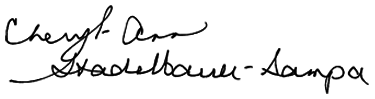 Cheryl Ann
Stadelbauer-Sampa